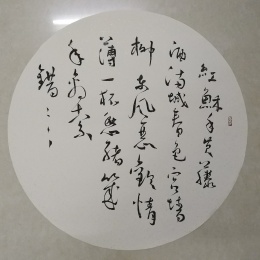 紅酥手黄縢
酒滿城春色宮墙
柳東風惡歡情
薄一怀愁緒幾
年離索
錯〻〻